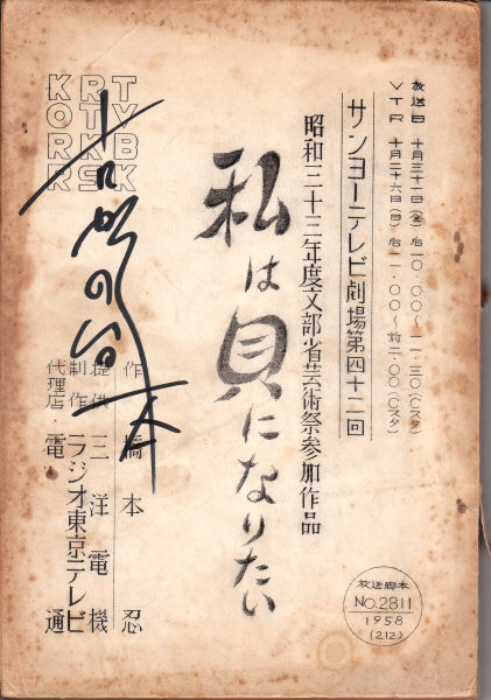 放送日 十月三十一日(金)后一〇.〇〇～一一.三〇(Cスタ)
VTR 十月二十六日(日)后一一.〇〇～前二.〇〇(Cスタ)
サンヨーテレビ劇場第四十二回
昭和三十三年度文部省芸術祭参加作品
私は貝になりたい
作 橋本 忍
提供 三洋電機
制作 ラジオ東京テレビ
代理店・電通
KRT
OTV
RKB
RSK
放送脚本
No.2811
1958
(212)